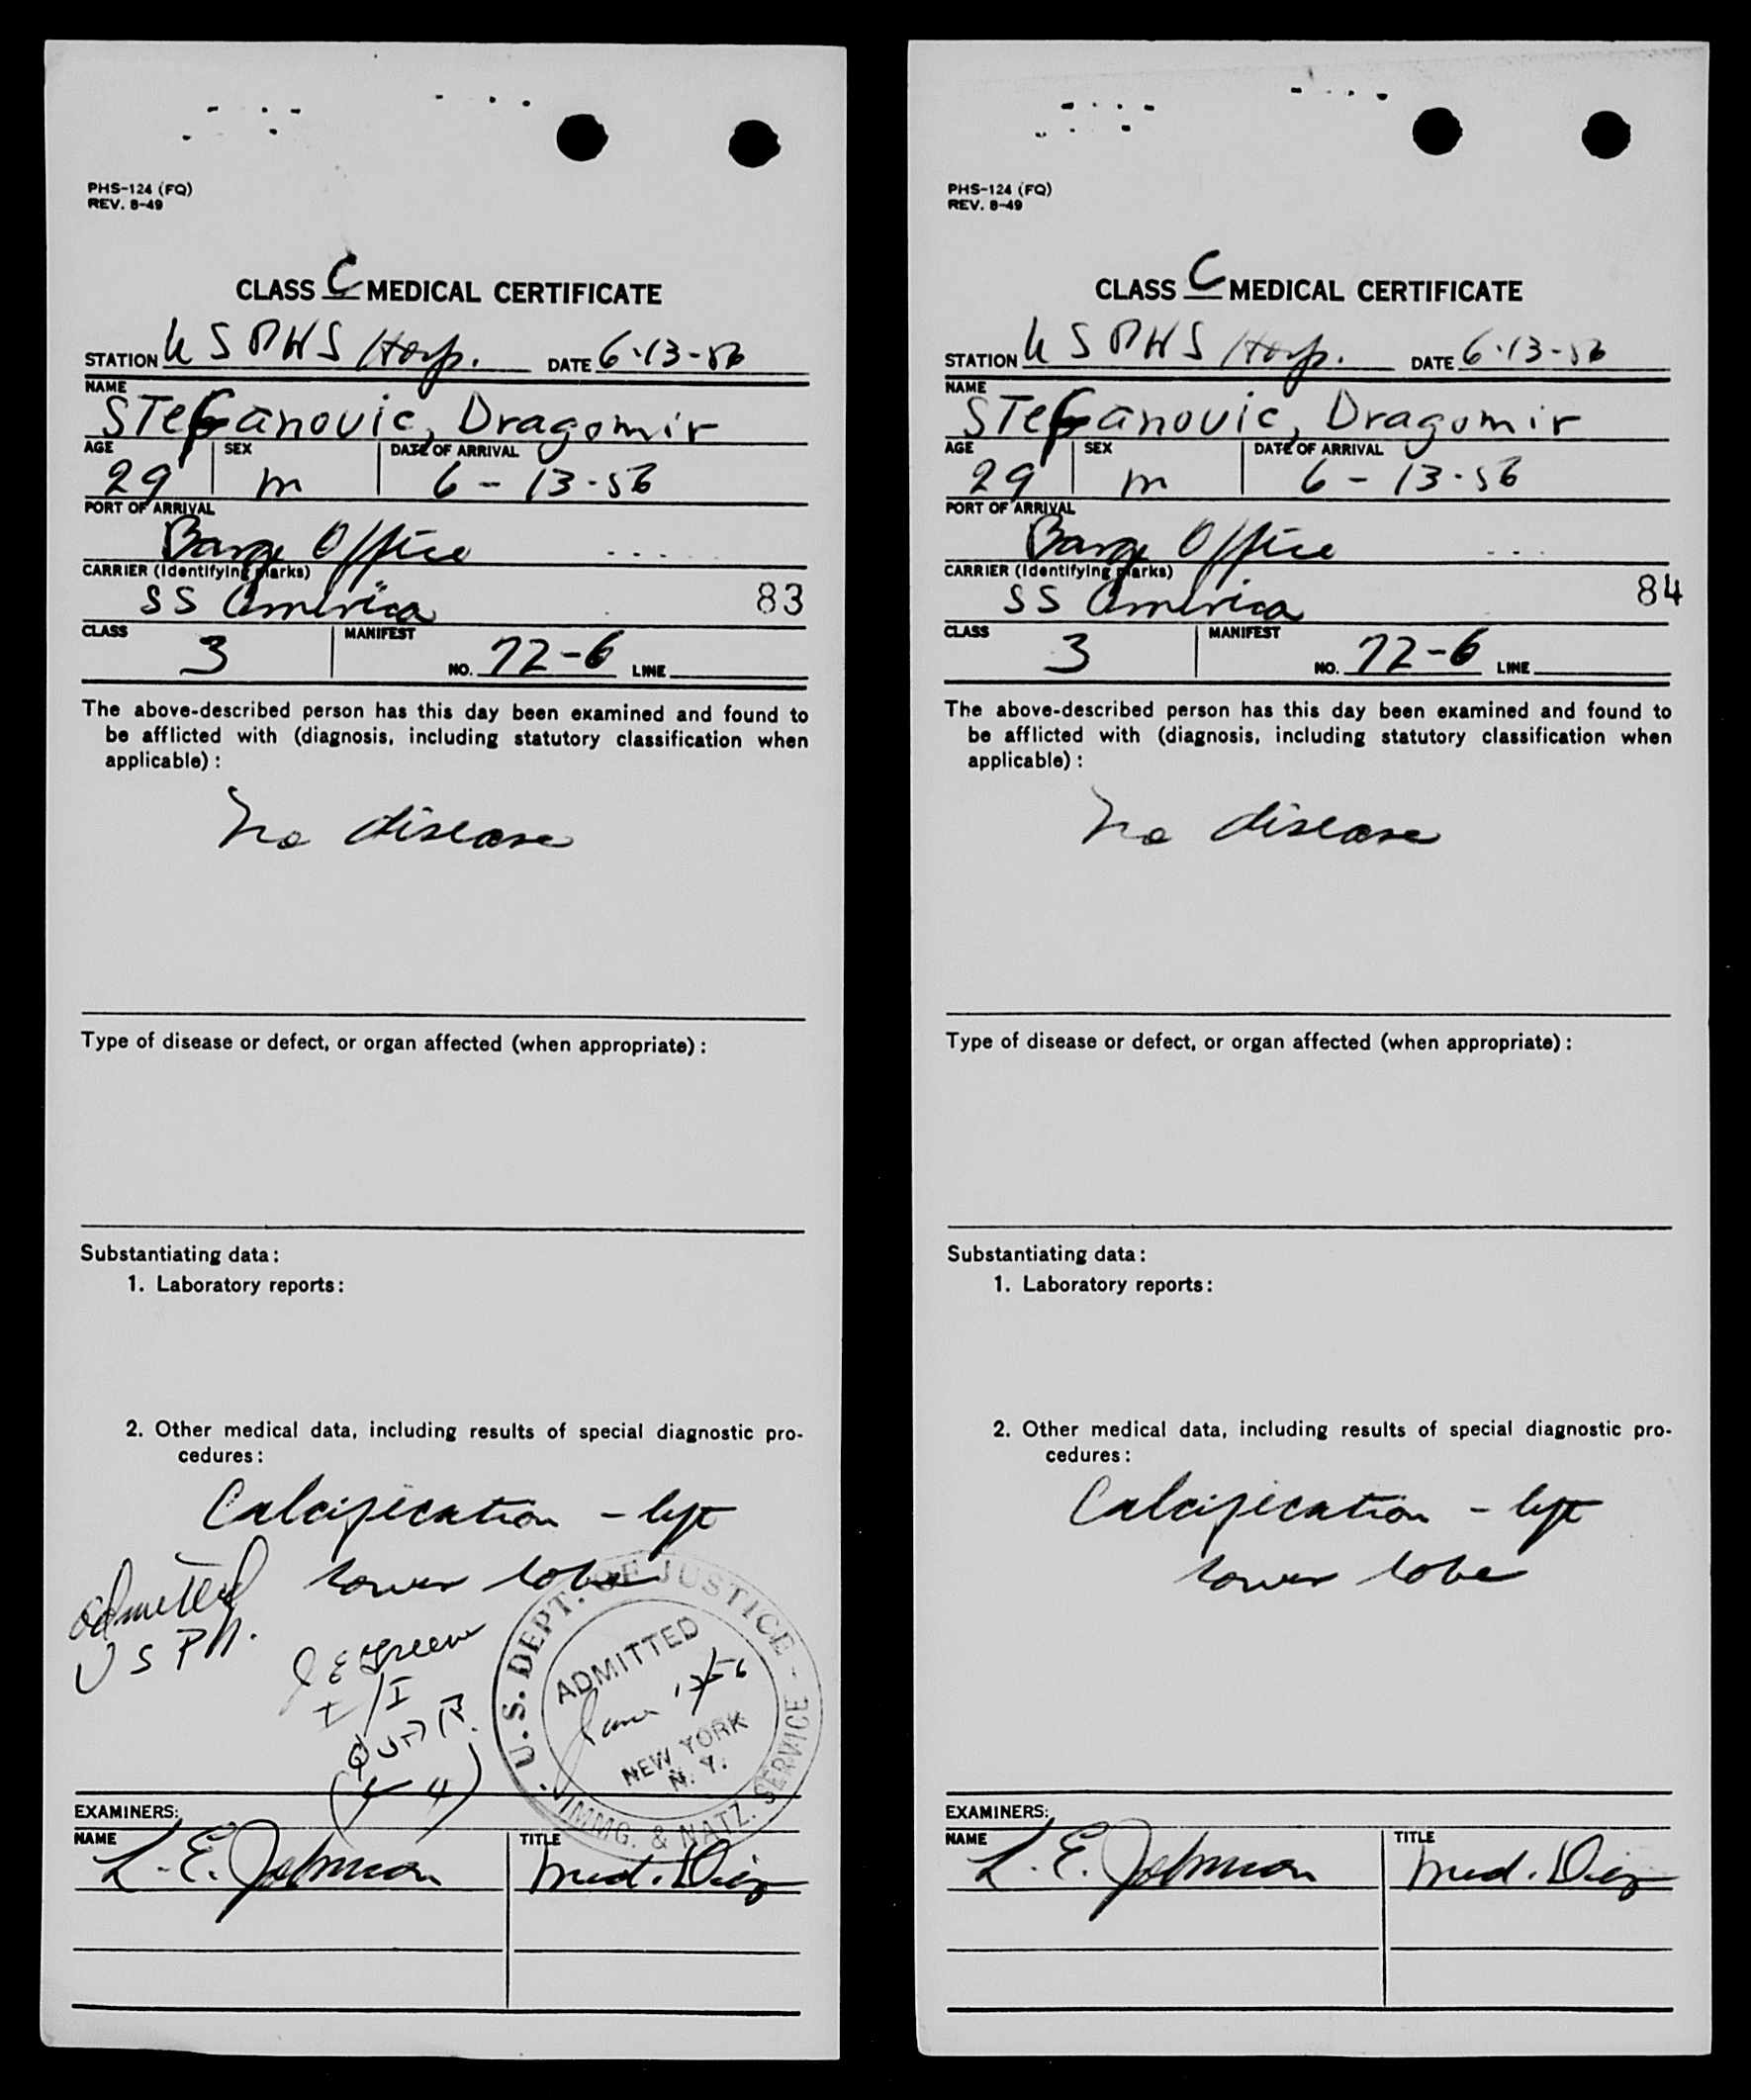 PHS-124 (FQ)
REV. 8-49
CLASS C MEDICAL CERTIFICATE
STATION U S P H S Hosp. DATE 6-13-56
NAME
STefanovic, Dragomir
AGE SEX DATE OF ARRIVAL
29 m 6-13-56
PORT OF ARRIVAL
Barge Office
CARRIER (Identifying marks)
SS America 83
CLASS MANIFEST
3 NO. 72-6 LINE
The above-described person has this day been examined and found to
be afflicted with (diagnosis, including statutory classification when
applicable):
No disease
Type of disease or defect, or organ affected (when appropriate):
Substantiating data:
1. Laboratory reports:
2. Other medical data, including results of special diagnostic pro-
cedures:
Calcification - left
lower lobe
admitted
U S P H.
J E Greene
I/I
(4-4)
U.S. DEPT. OF JUSTICE - IMMG. & NATZ. SERVICE
ADMITTED
June 13/56
NEW YORK
N. Y.
EXAMINERS:
NAME TITLE
L. E. Johnson Med. Dir
PHS-124 (FQ)
REV. 8-49
CLASS C MEDICAL CERTIFICATE
STATION U S P H S Hosp. DATE 6-13-56
NAME
STefanovic, Dragomir
AGE SEX DATE OF ARRIVAL
29 m 6-13-56
PORT OF ARRIVAL
Barge Office
CARRIER (Identifying marks)
SS America 84
CLASS MANIFEST
3 NO. 72-6 LINE
The above-described person has this day been examined and found to
be afflicted with (diagnosis, including statutory classification when
applicable):
No disease
Type of disease or defect, or organ affected (when appropriate):
Substantiating data:
1. Laboratory reports:
2. Other medical data, including results of special diagnostic pro-
cedures:
Calcification - left
lower lobe
EXAMINERS:
NAME TITLE
L. E. Johnson Med. Dir